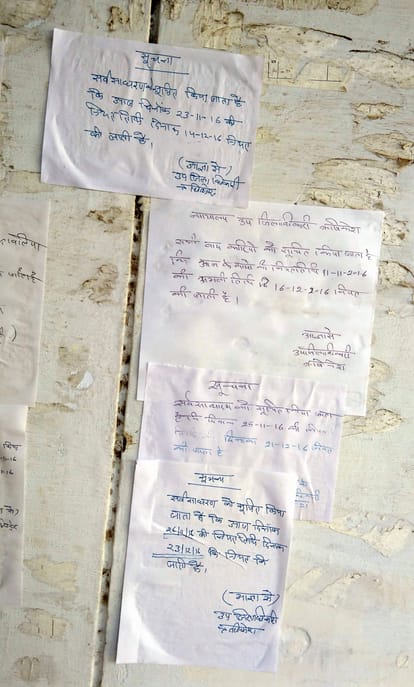 सूचना
सर्वसाधारण को सूचित किया जाता है
कि आज दिनांक 23-11-16 की
नियत तिथि दिनांक 14-12-16 नियत
की जाती है।
(आज्ञा से)
उप जिलाधिकारी
ऋषिकेश
न्यायालय उप जिलाधिकारी ऋषिकेश
सभी वाद कारियों को सूचित किया जाता है
कि आज के वादों की नियत तिथि
की अगली तिथि नियत
की जाती है।
आज्ञा से
उपजिलाधिकारी
ऋषिकेश
सूचना
सर्वसाधारण को सूचित किया जाता
है कि दिनांक 25-11-16 की नियत
दिनांक 21-12-16 नियत
की जाती है
सूचना
सर्वसाधारण को सूचित किया
जाता है कि आज दिनांक
26/11/16 को नियत तिथि दिनांक
23/12/16 नियत की
जाती है।
(आज्ञा से)
उप जिलाधिकारी
ऋषिकेश